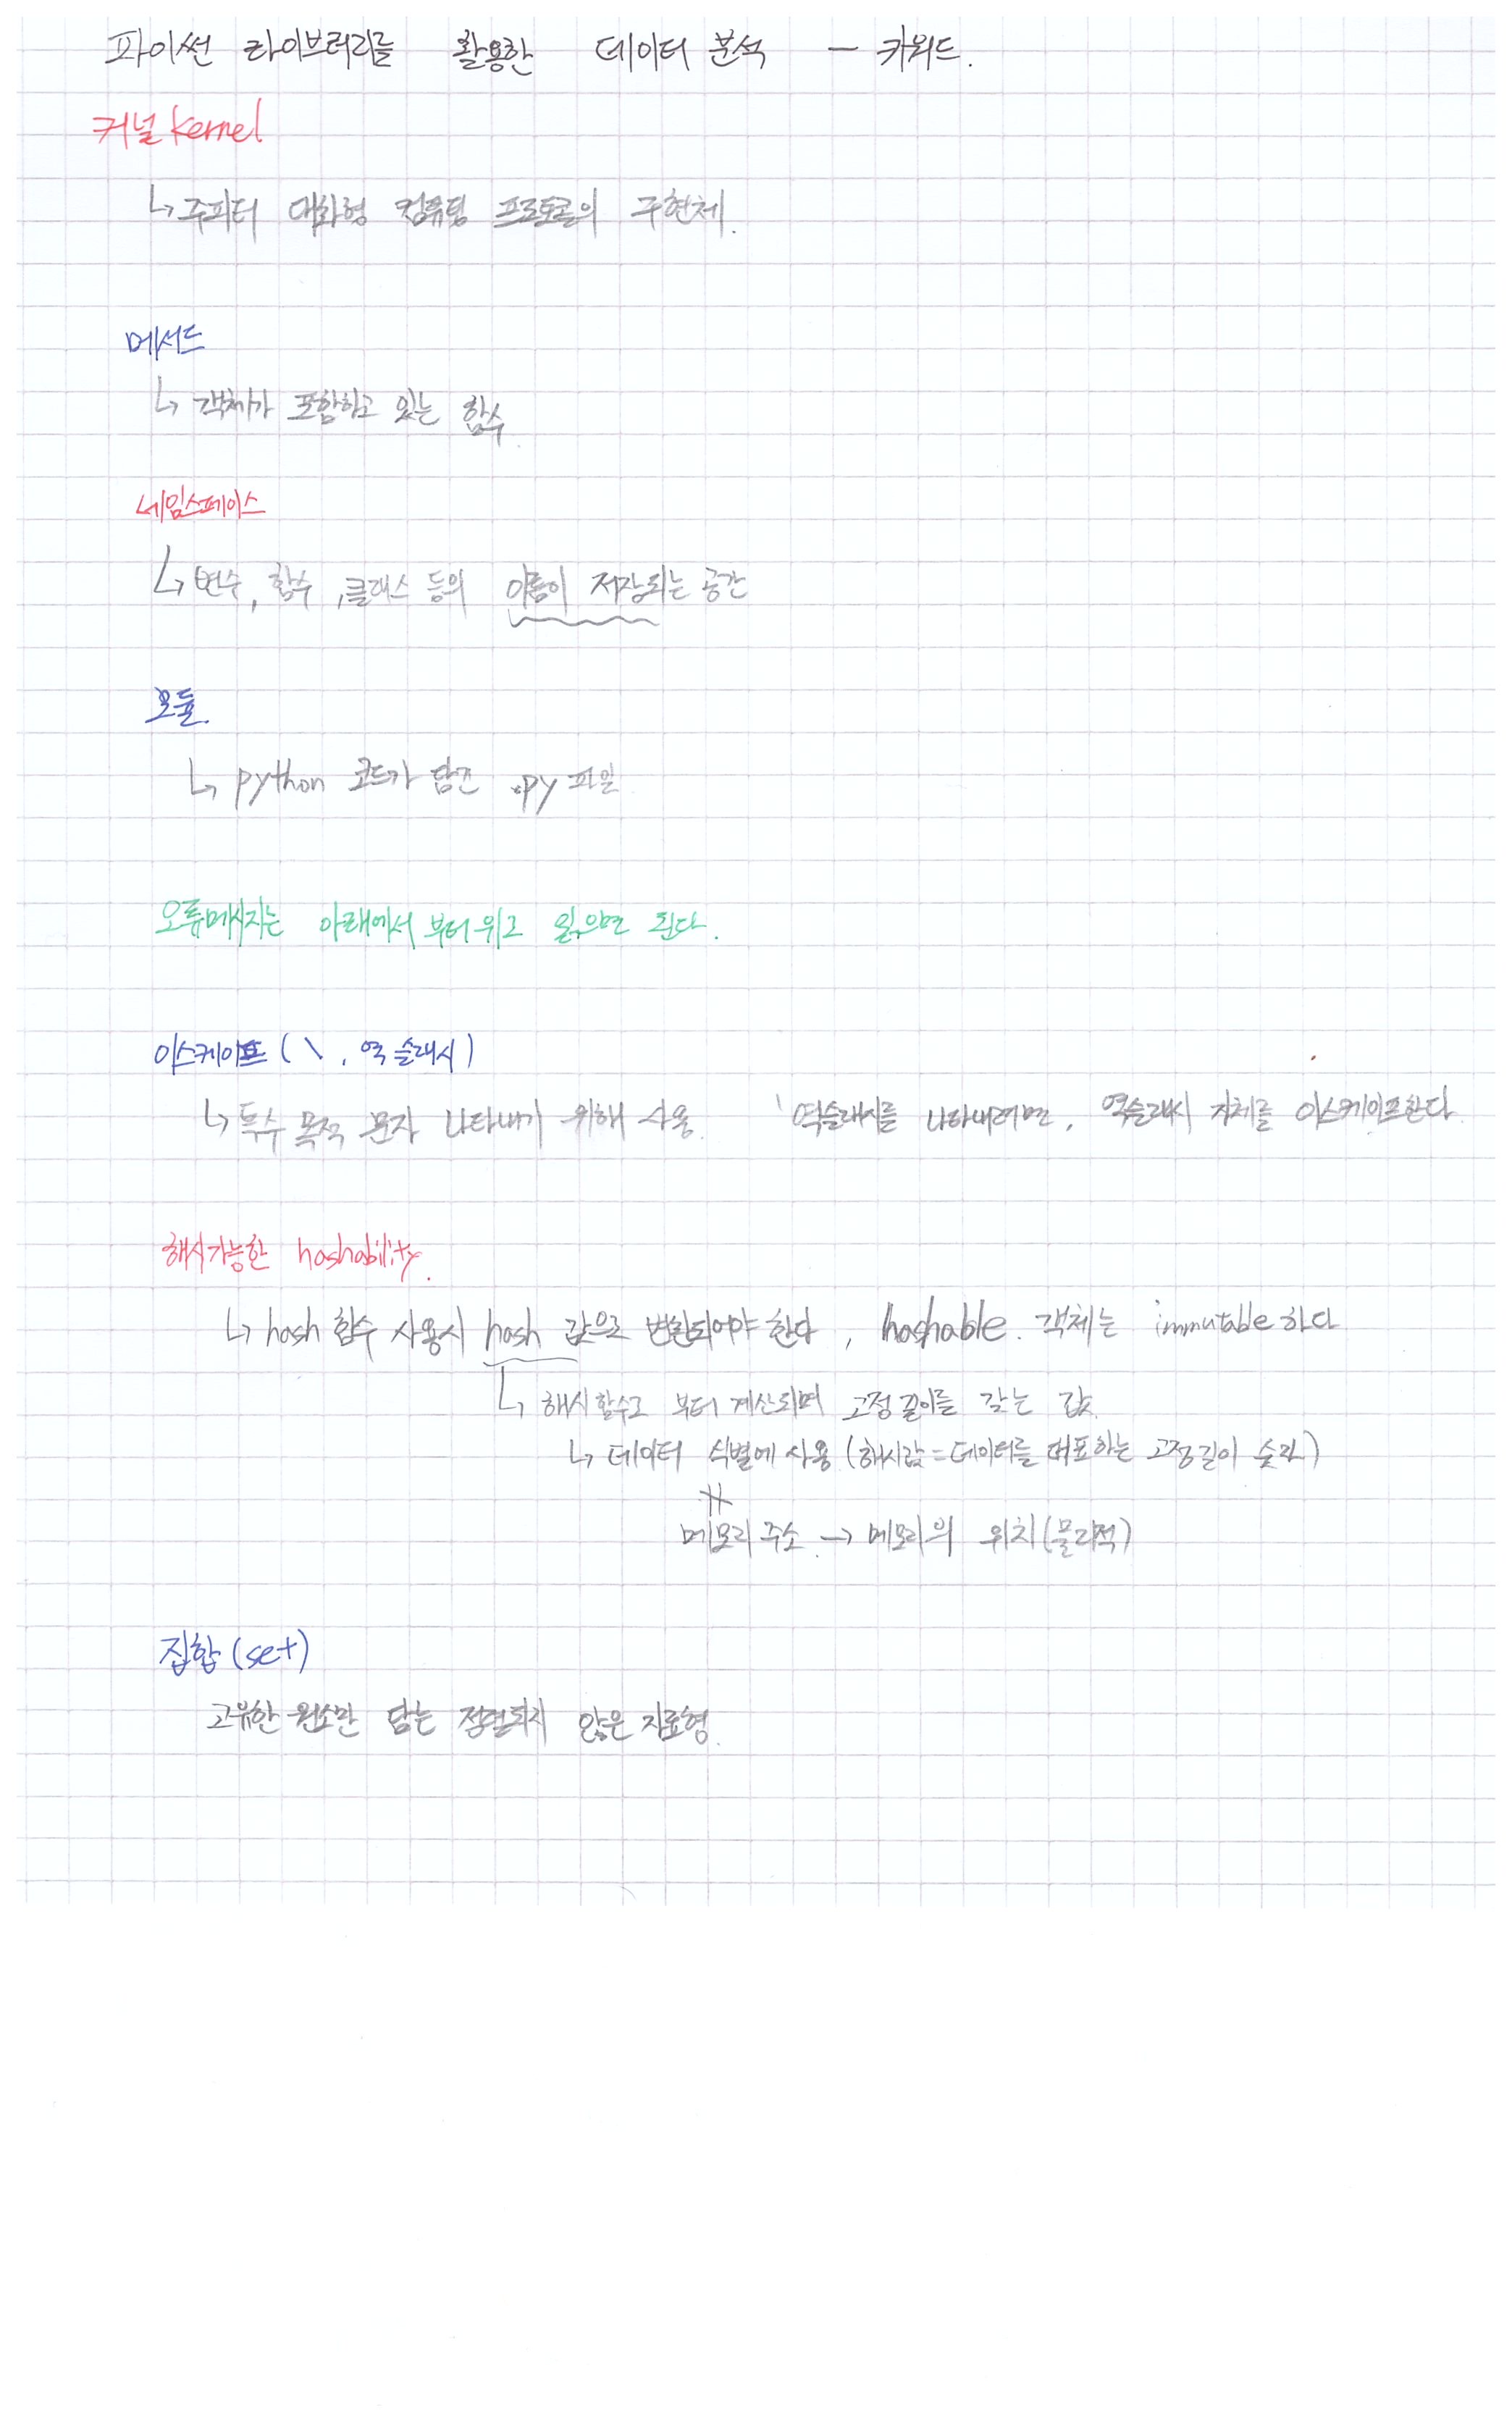 파이썬 라이브러리를 활용한 데이터 분석 - 키워드.
커널 kernel
↳ 주피터 대화형 컴퓨팅 프로토콜의 구현체.
메서드
↳ 객체가 포함하고 있는 함수.
네임스페이스
↳ 변수, 함수, 클래스 등의 이름이 저장되는 공간
모듈.
↳ python 코드가 담긴 .py 파일
오류메시지는 아래에서 부터 위로 읽으면 된다.
이스케이프 ( \ , 역 슬래시 )
↳ 특수 목적 문자 나타내기 위해 사용. \ 역슬래시를 나타내려면, 역슬래시 자체를 이스케이프한다.
해시가능한 hashability.
↳ hash 함수 사용시 hash 값으로 변환되어야 한다, hashable. 객체는 immutable 하다
↳ 해시 함수로 부터 계산되며 고정 길이를 갖는 값.
↳ 데이터 식별에 사용 (해시값 = 데이터를 대표하는 고정 길이 숫자)
≠
메모리 주소. → 메모리의 위치 (물리적)
집합 (set)
고유한 원소만 담는 정렬되지 않은 자료형.